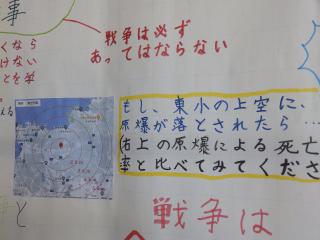 事
戦争は必ず
あってはならない
くなら
けない
とを学
える
もし、東小の上空に、
原爆が落とされたら…
(右上の原爆による死亡
率と比べてみてくださ
と
戦争は